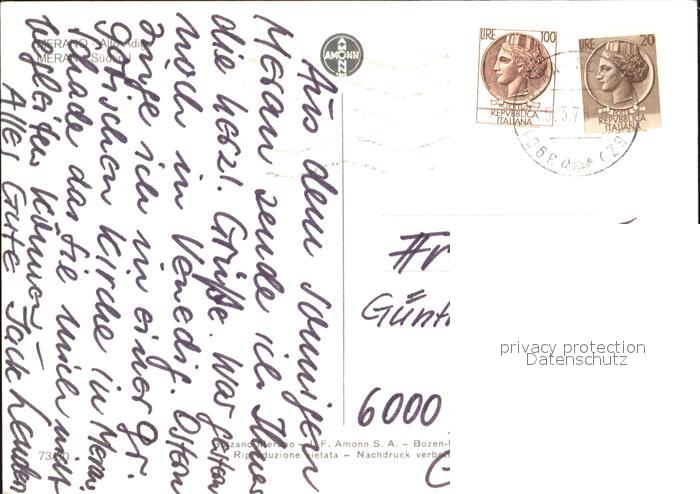 MERANO - Alto Adige
MERAN - Südtirol
AMONN
LIRE 100
REPVBBLICA
ITALIANA
LIRE 20
REPVBBLICA
ITALIANA
39012
(BZ)
Aus dem sonnigen
Meran sende ich Ihnen
die herzl. Grüße. War gestern
noch in Venedig. Ostern
singe ich in einer gr.
gotischen Kirche in Meran
Schade das Sie mich nicht
begleiten können
Alles Gute
Fr
Günth
6000
privacy protection
Datenschutz
73/
Bolzano-Merano - J. F. Amonn S. A. - Bozen-
Riproduzione vietata - Nachdruck verbot